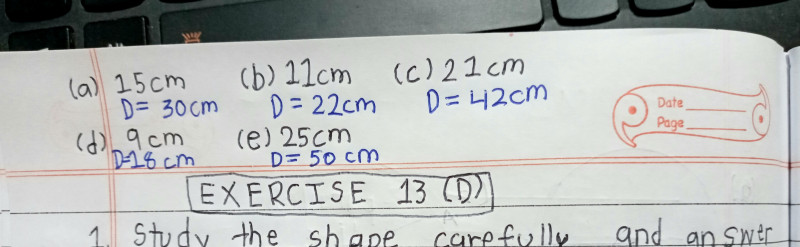 (a) 15cm (b) 11cm (c) 21cm
D= 30cm D= 22cm D= 42cm
(d) 9cm (e) 25cm
D=18 cm D= 50 cm
Date
Page
EXERCISE 13 (D)
1. Study the shape carefully and answer